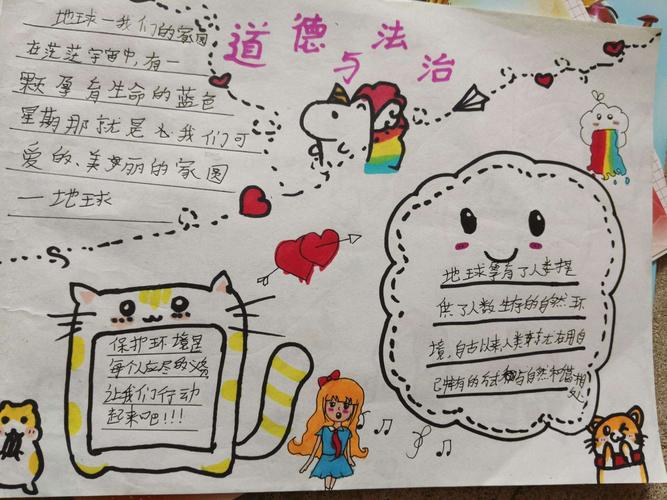 道德与法治
地球一我们的家园
在茫茫宇宙中,有一
颗孕育生命的蓝色
星期那就是 我们可
爱的、美丽的家园
一地球
地球孕育了人类提
供了人数生存的自然环
境,自古以来,人类就在用自
己特有的方式 与自然和谐相
处
保护环境是
每个人应尽的义务
让我们行动
起来吧!!!